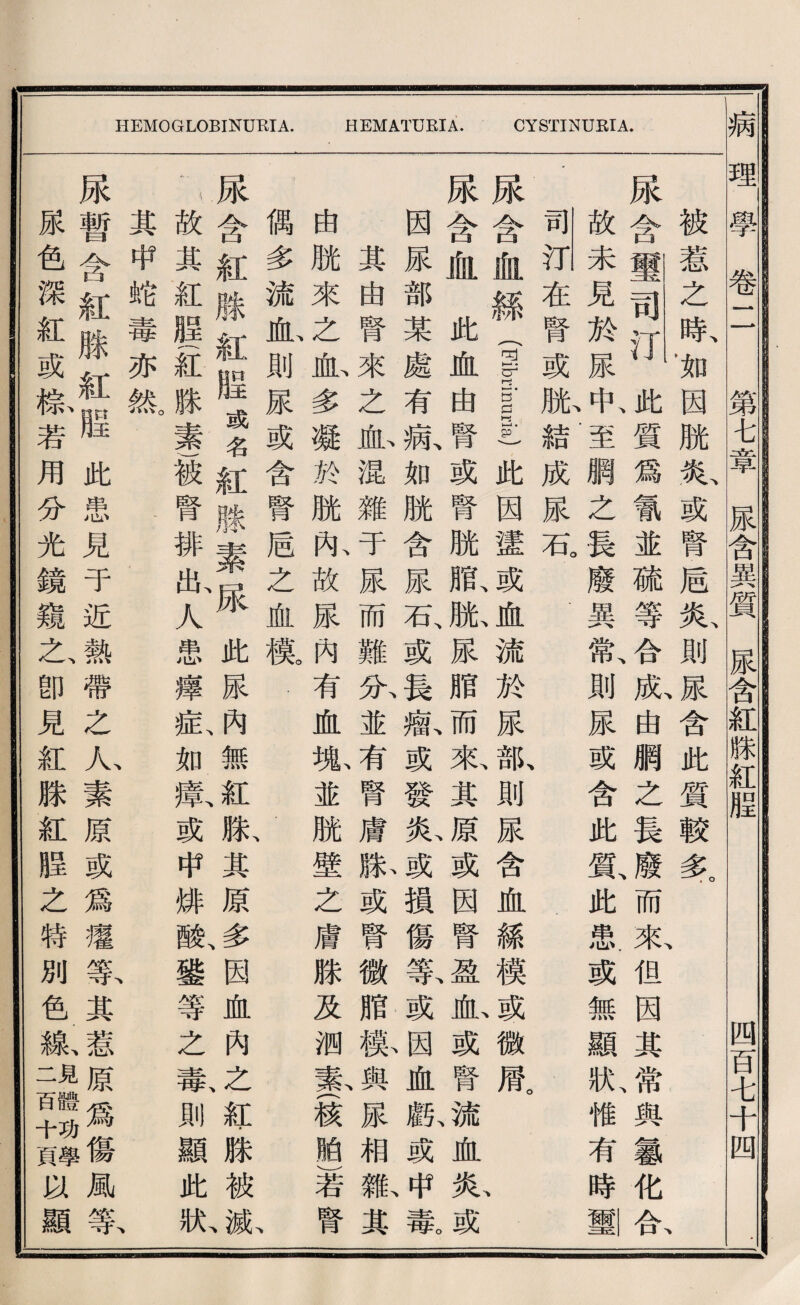 HEMOGLOBINURIA. HEMATURIA. CYSTINURIA.
病理學 卷二 第七章 尿含異質 尿含紅䏭紅脭 四百七十四
被惹之時、如因胱炎、或腎巵炎、則尿含此質較多。
尿含璽司汀 此質爲氰並硫等合成、由膶之長廢而來、但因其常與氱化合、
故未見於尿中、至膶之長廢異常、則尿或含此質、此患或無顯狀、惟有時璽
司汀在腎或胱、結成尿石。
尿含血絲 (Fibrinuria) 此因盪或血流於尿部、則尿含血絲模或微屑。
尿含血 此血由腎或腎胱脂、胱、尿脂而來、其原或因腎盈血、或腎流血炎、或
因尿部某處有病、如胱含尿石、或長瘤、或發炎、或損傷等、或因血虧、或中毒。
其由腎來之血、混雜于尿而難分、並有腎膚䏭、或腎微脂模、與尿相雜、其
由胱來之血、多凝於胱內、故尿內有血塊、並胱壁之膚䏭及泗素、(核𦚾)若腎
偶多流血、則尿或含腎巵之血模。
尿含紅䏭紅脭 或名紅䏭素尿 此尿內無紅䏭、其原多因血內之紅䏭被滅、
故其紅脭(紅䏭素)被腎排出、人患㾾症、如瘴、或中煋酸、䥫等之毒、則顯此狀、
其中蛇毒亦然。
尿暫含紅䏭紅脭 此患見于近熱帶之人、素原或爲癨等、其惹原爲傷風等、
尿色深紅或棕、若用分光鏡窺之、卽見紅䏭紅脭之特別色線、見體功學二百十頁以顯